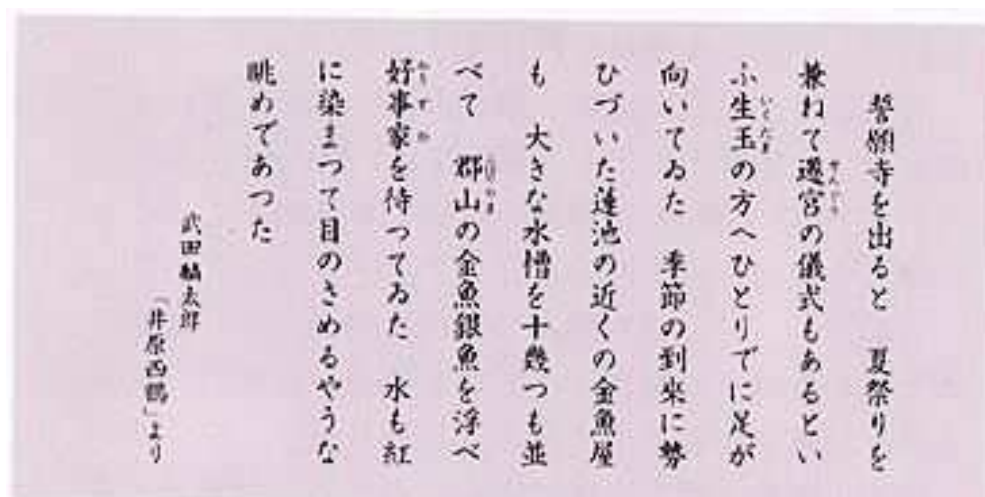 誓願寺を出ると　夏祭りを
兼ねて遷宮の儀式もあるとい
ふ生玉の方へひとりでに足が
向いてゐた　季節の到来に勢
ひづいた蓮池の近くの金魚屋
も　大きな水槽を十幾つも並
べて　郡山の金魚銀魚を浮べ
好事家を待つてゐた　水も紅
に染まつて目のさめるやうな
眺めであつた
武田麟太郎
「井原西鶴」より